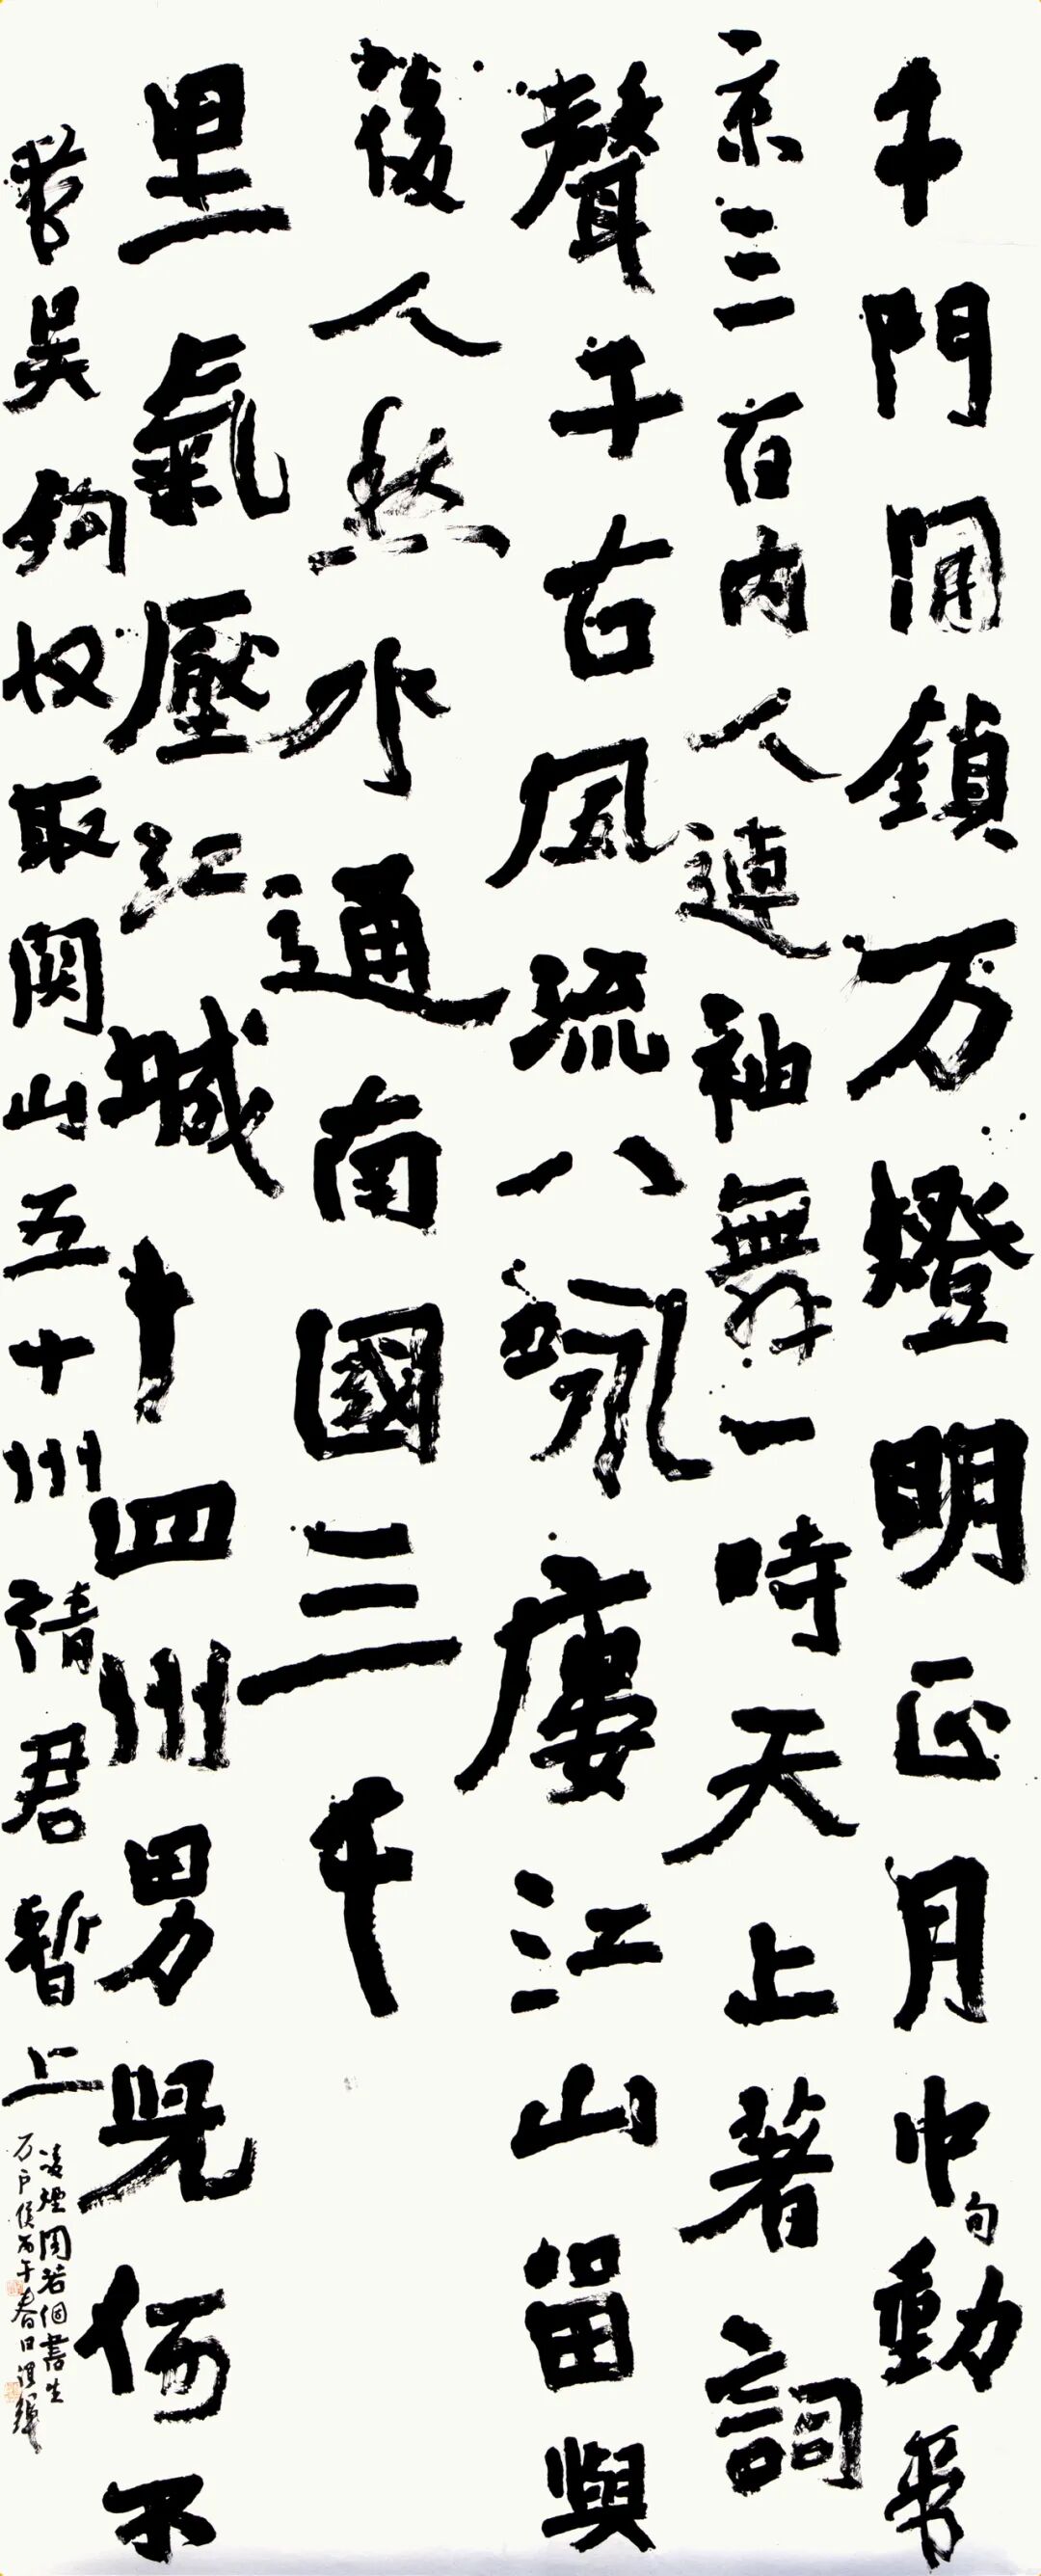 千門開鎖万燈明正月中旬動帝
京三百内人連袖舞一時天上著詞
聲千古風流八詠廔江山留與
後人愁水通南國三千
里氣壓江城十四州男児何不
帶吳鉤収取関山五十州請君暫上
凌煙閣若個書生
万户侯丙午春日